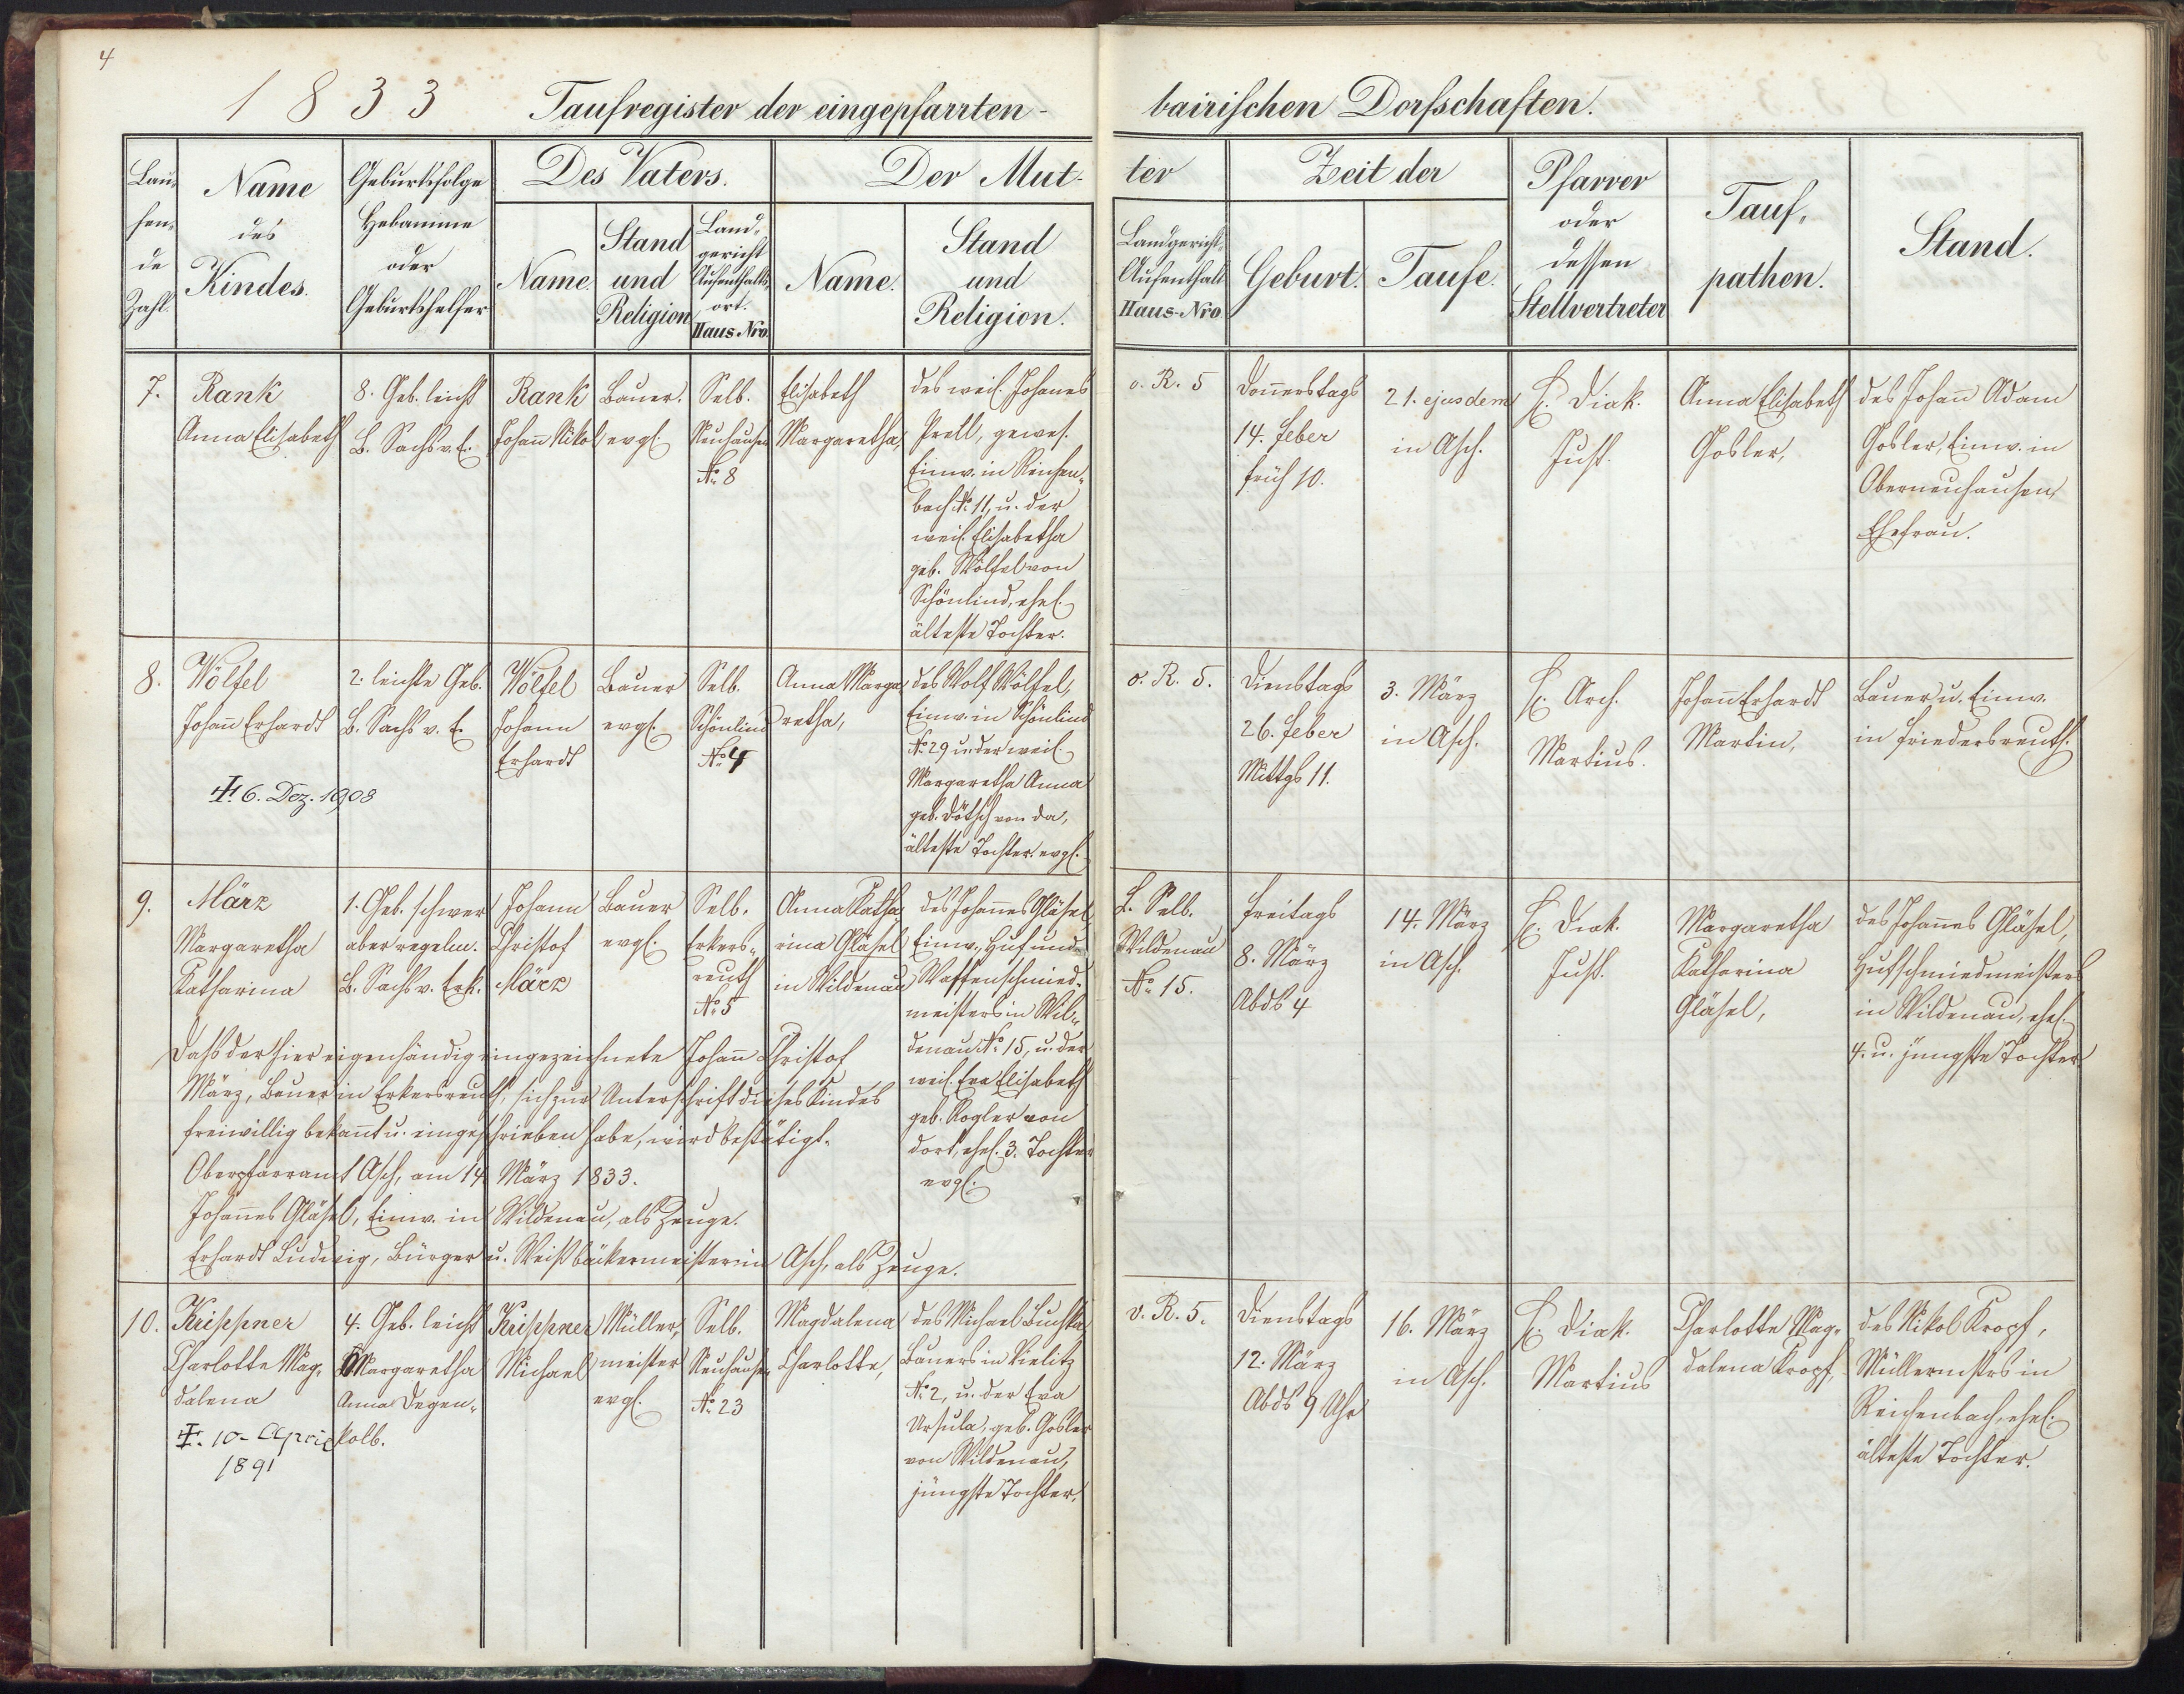 4
1833 Taufregister der eingepfarrten-
bairischen Dorfschaften.
Lau-
fen-
de
Zahl.
Name
des
Kindes.
Geburtsfolge
Hebamme
oder
Geburtshelfer
Des Vaters.
Name.
Stand
und
Religion
Land-
gericht
Aufenthalts-
ort.
Haus-Nro.
Der Mut-
Name.
Stand
und
Religion.
ter
Landgericht-
Aufenthalt
Haus-Nro.
Zeit der
Geburt.
Taufe.
Pfarrer
oder
dessen
Stellvertreter
Tauf-
pathen.
Stand.
7.
Rank
Anna Elisabeth
8. Geb. leicht
B. Sachs v. E.
Rank
Johann Nikol
Bauer.
evgl.
Selb.
Neuhausen
No. 8
Elisabeth
Margaretha,
des weil. Johannes
Prell, gewes.
Einw. in Reichen-
bach No. 11, u. der
weil. Elisabetha
geb. Wölfel von
Schönlind, ehel.
älteste Tochter.
v. R. 5
Donnerstags
14. Feber
früh 10.
21. ejusdem
in Asch.
H. Diak.
Just.
Anna Elisabeth
Gosler,
des Johann Adam
Gosler, Einw. in
Oberneuhausen,
Ehefrau.
8.
Wölfel
Johann Erhardt
✝. 6. Dez. 1908
2. leichte Geb.
B. Sachs v. E.
Wölfel
Johann
Erhardt
Bauer
evgl.
Selb.
Schönlind
No. 4
Anna Marga
retha,
des Wolf Wölfel,
Einw. in Schönlind
No. 29 u. der weil.
Margaretha Anna
geb. Dötsch von da,
älteste Tochter. evgl.
v. R. 5.
Dienstags
26. Feber
Mittgs 11.
3. März
in Asch.
H. Arch.
Martius.
Johann Erhardt
Martin,
Bauer u. Einw.
in Friedersreuth.
9.
März
Margaretha
Katharina
1. Geb. schwer
aber regelm.
B. Sachs v. Erk.
Johann
Christof
März
Bauer
evgl.
Selb.
Erkers-
reuth
No. 5
Anna Katha
rina Gläsel
in Wildenau
des Johannes Gläsel
Einw., Huf und
Waffenschmied-
meisters in Wil-
denau No. 15, u. der
weil. Eva Elisabeth
geb. Rogler von
dort, ehel. 3. Tochter
evgl.
L. Selb.
Wildenau
No. 15.
Freitags
8. März
Abds 4
14. März
in Asch.
H. Diak.
Just.
Margaretha
Katharina
Gläsel,
des Johannes Gläsel,
Hufschmiedmeisters
in Wildenau, ehel.
4. u. jüngste Tochter
Dass der hier eigenhändig eingezeichnete Johann Christof
März, Bauer in Erkersreuth, sich zur Unterschrift dieses Kindes
freiwillig bekannt u. eingeschrieben habe, wird bestätigt.
Oberpfarramt Asch, am 14. März 1833.
Johannes Gläsel, Einw. in Wildenau, als Zeuge.
Erhardt Ludwig, Bürger u. Weißbäckermeister in Asch, als Zeuge.
10.
Krippner
Charlotte Mag-
dalena
✝. 10. April
1891
4. Geb. leicht
Margaretha
Anna Degen-
kolb.
Krippner
Michael
Müller,
meister
evgl.
Selb.
Neuhausen
No. 23
Magdalena
Charlotte,
des Michael Buchka,
Bauers in Vielitz
No. 2, u. der Eva
Ursula, geb. Gosler
von Wildenau,
jüngste Tochter.
v. R. 5.
Dienstags
12. März
Abds 9 Uhr
16. März
in Asch.
H. Diak.
Martius
Charlotte Mag-
dalena Kropf,
des Nikol Kropf,
Müllermstrs in
Reichenbach, ehel.
älteste Tochter.